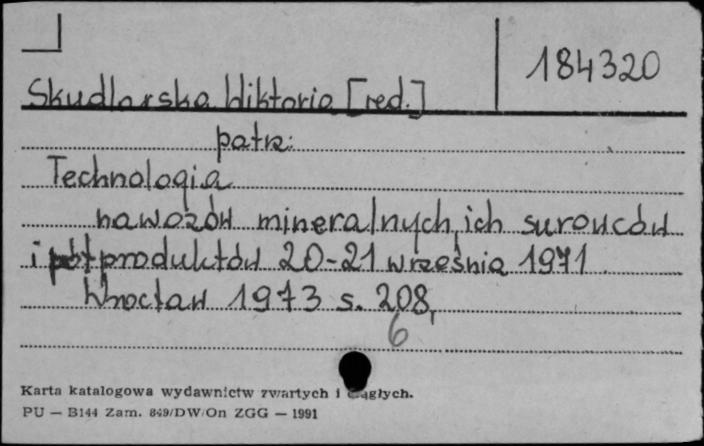 184320
Skudlarska Wiktoria [red.]
patrz:
Technologia
nawozów mineralnych, ich surowców
i półproduktów 20-21 września 1971.
Wrocław 1973 s. 208,
6
Karta katalogowa wydawnictw zwartych i ciągłych.
PU — B144 Zam. 849/DW/On ZGG — 1991